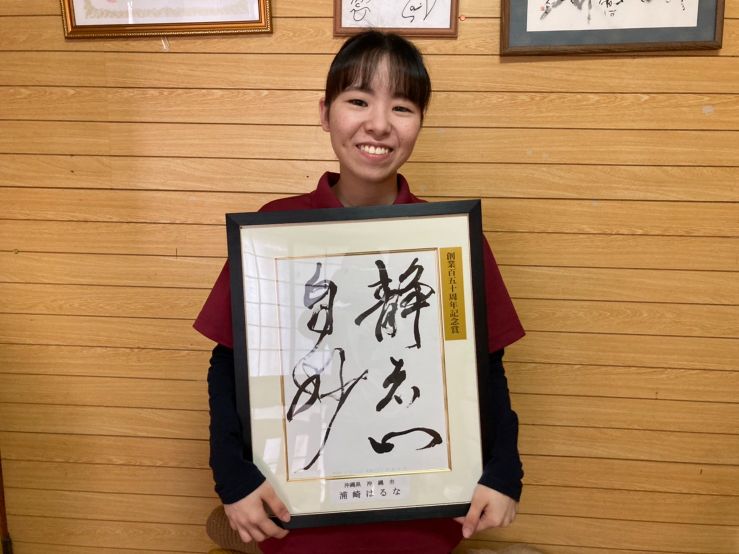 創業百五十周年記念賞
静者心
自妙
沖縄県 沖縄市
浦崎はるな